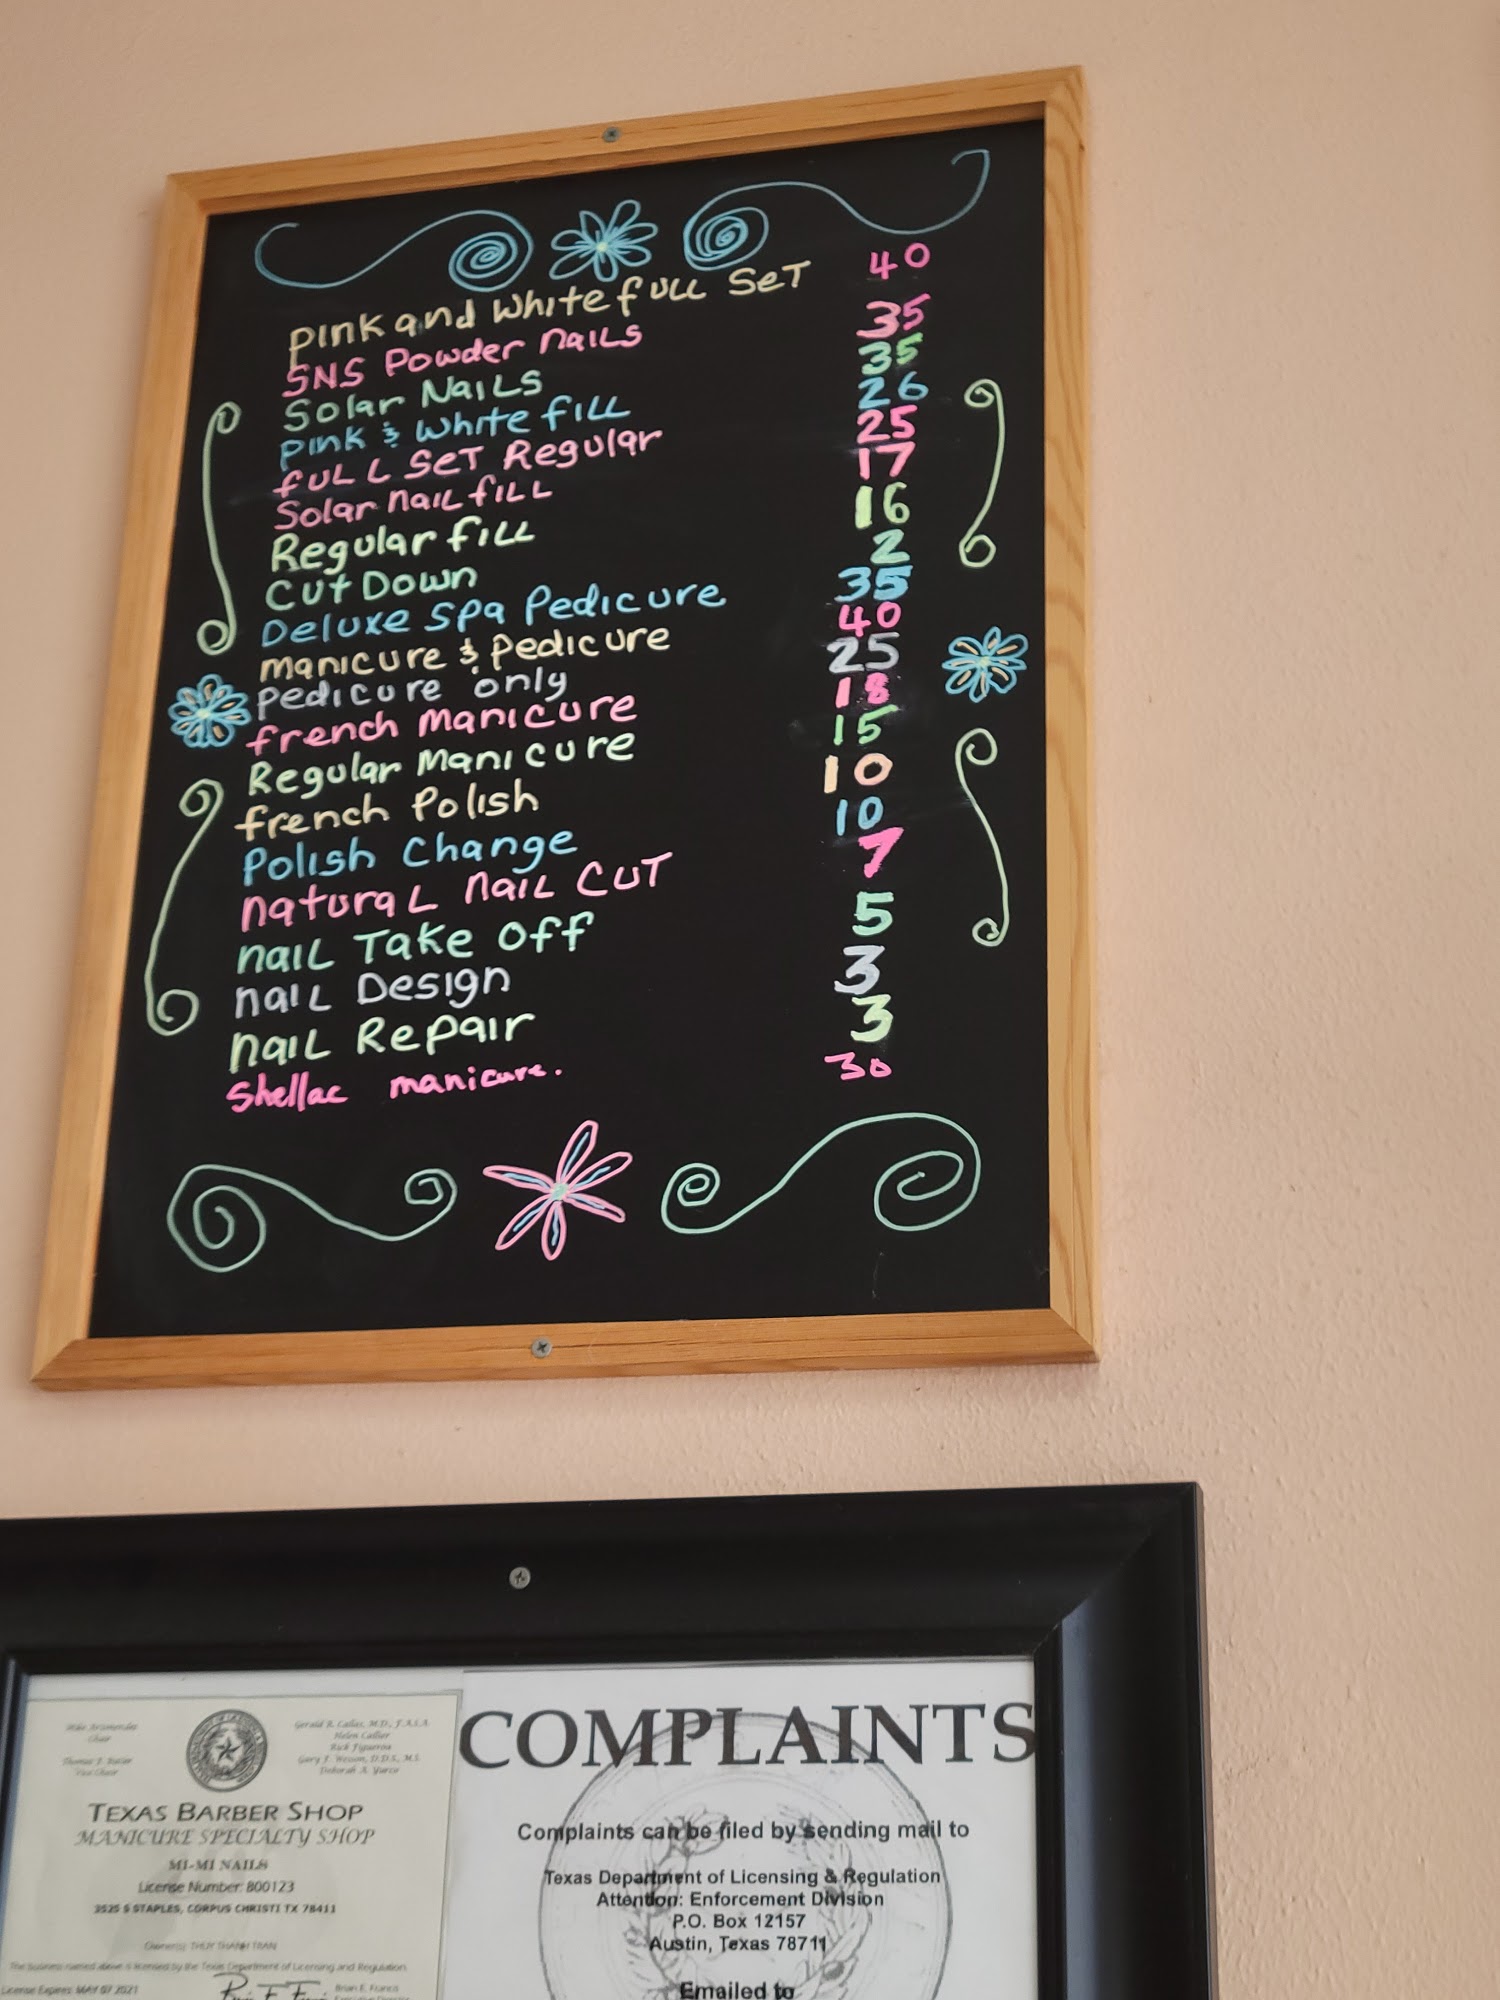 Pink and White full Set 40
SNS Powder Nails 35
Solar Nails 35
Pink & White fill 26
full Set Regular 25
Solar nail fill 17
Regular fill 16
Cut Down 2
Deluxe Spa Pedicure 35
Manicure & Pedicure 40
Pedicure only 25
french Manicure 18
Regular Manicure 15
french Polish 10
Polish Change 10
natural nail CUT 7
nail Take Off 5
nail Design 3
nail Repair 3
Shellac manicure. 30
Chair
Vice Chair
Gerald R. Callas, M.D., F.A.S.A.
Helen Callier
Rick Figueroa
Gary F. Wesson, D.D.S., M.S.
Deborah A. Yurco
TEXAS BARBER SHOP
MANICURE SPECIALTY SHOP
MI-MI NAILS
License Number: 800123
3525 S STAPLES, CORPUS CHRISTI TX 78411
Owner(s): THUY THANH TRAN
The business named above is licensed by the Texas Department of Licensing and Regulation
License Expires: MAY 07 2021
Brian E. Francis
Executive Director
COMPLAINTS
Complaints can be filed by sending mail to
Texas Department of Licensing & Regulation
Attention: Enforcement Division
P.O. Box 12157
Austin, Texas 78711
Emailed to